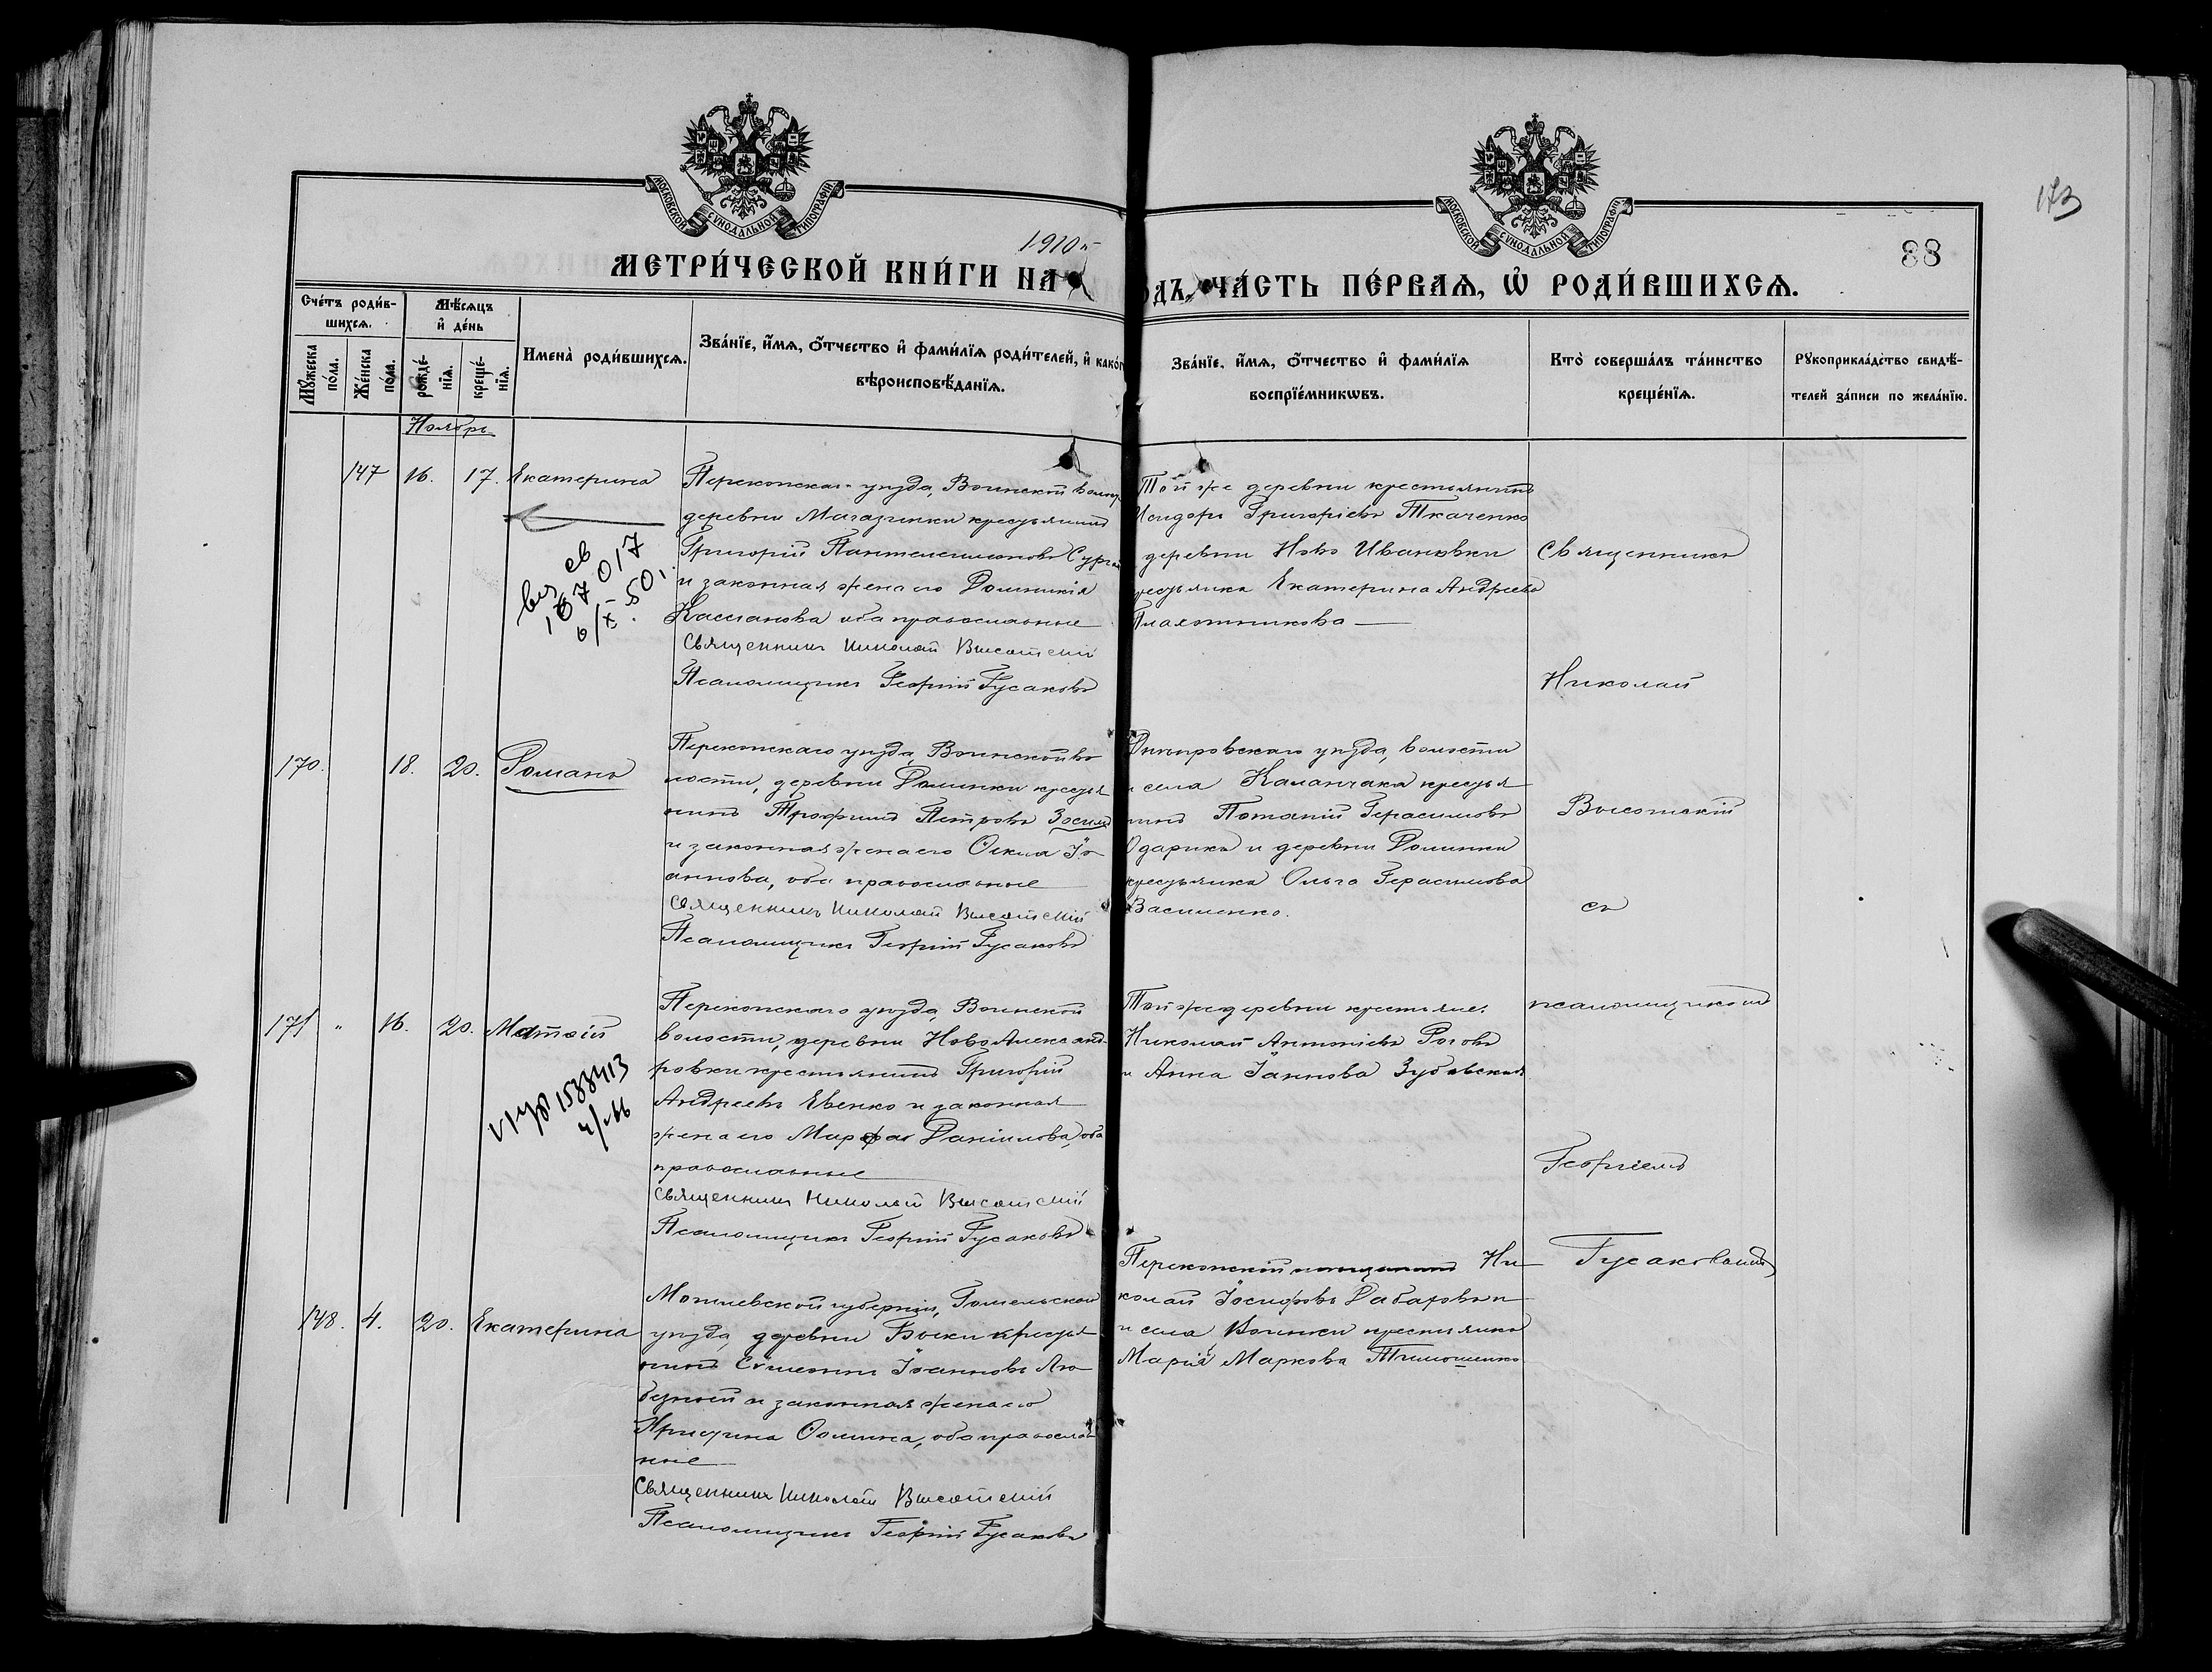 МОСКОВСКОЙ СѴНОДАЛЬНОЙ ТИПОГРАФІИ
МОСКОВСКОЙ СѴНОДАЛЬНОЙ ТИПОГРАФІИ
173
88
1910
МЕТРИ́ЧЕСКОЙ КНИ́ГИ НА
ДЪ, ЧА́СТЬ ПЕ́РВАѦ, Ѡ҆ РОДИ́ВШИХСѦ.
Сче́тъ роди́в-
шихсѧ.
Мꙋ́жеска по́ла.
Же́нска по́ла.
Мѣ́сѧцъ
и҆ де́нь
рожде́-
нїѧ.
креще́-
нїѧ.
Имена̀ роди́вшихсѧ.
Зва́нїе, и҆́мѧ, ѻ҆́тчество и҆ фами́лїѧ роди́телей, и҆ како́г
вѣроисповѣ́данїѧ.
Зва́нїе, и҆́мѧ, ѻ҆́тчество и҆ фами́лїѧ
воспрїе́мникωвъ.
Кто̀ соверша́лъ та́инство
креще́нїѧ.
Рꙋкоприкла́дство свидѣ́-
телей за́писи по жела́нїю.
Ноябрь
147 16. 17. Екатерина
Перекопскаго уѣзда, Воинской волос
деревни Магазинки крестьянинъ
Григорій Пантелеимоновъ Сург
и законная жена его Домникія
Кассіанова оба православные
Священникъ Николай Высотскій
Псаломщикъ Георгій Гусаковъ
Той же деревни крестьянинъ
Исидоръ Григоріевъ Ткаченко
деревни Ново Ивановки
крестьянка Екатерина Андреева
Плахотникова
Священникъ
Николай
Высотскій
съ
псаломщикомъ
Георгіемъ
Гусаковымъ
167017
6/X-50
170. 18. 20. Романъ
Перекопскаго уѣзда, Воинской во
лости, деревни Долинки крестья
нинъ Трофимъ Петровъ Зосим
и законная жена его Ѳекла Іо
аннова, оба православные
Священникъ Николай Высотскій
Псаломщикъ Георгій Гусаковъ
Днѣпровскаго уѣзда, волости
и села Каланчака крестья
нинъ Потапій Герасимовъ
Одарикъ и деревни Долинки
крестьянка Ольга Герасимова
Василенко.
171 " 16. 20. Матѳій
Перекопскаго уѣзда, Воинской
волости, деревни НовоАлександ
ровки крестьянинъ Григорій
Андреевъ Евенко и законная
жена его Марфа Даніилова, оба
православные
Священникъ Николай Высотскій
Псаломщикъ Георгій Гусаковъ
Той же деревни крестьяне:
Николай Антоніевъ Роговъ
и Анна Іаннова Зубавская
1588413
148. 4. 20. Екатерина
Могилевской губерніи, Гомельскаго
уѣзда, деревни крестья
нинъ Сѵмеонъ Іоанновъ Лю
безный и законная жена его
Христина Ѳомина, оба православ
ные
Священникъ Николай Высотскій
Псаломщикъ Георгій Гусаковъ
Перекопскій Ни
колай Іосифовъ
и села Воинки крестьянка
Марія Маркова Тимошенко